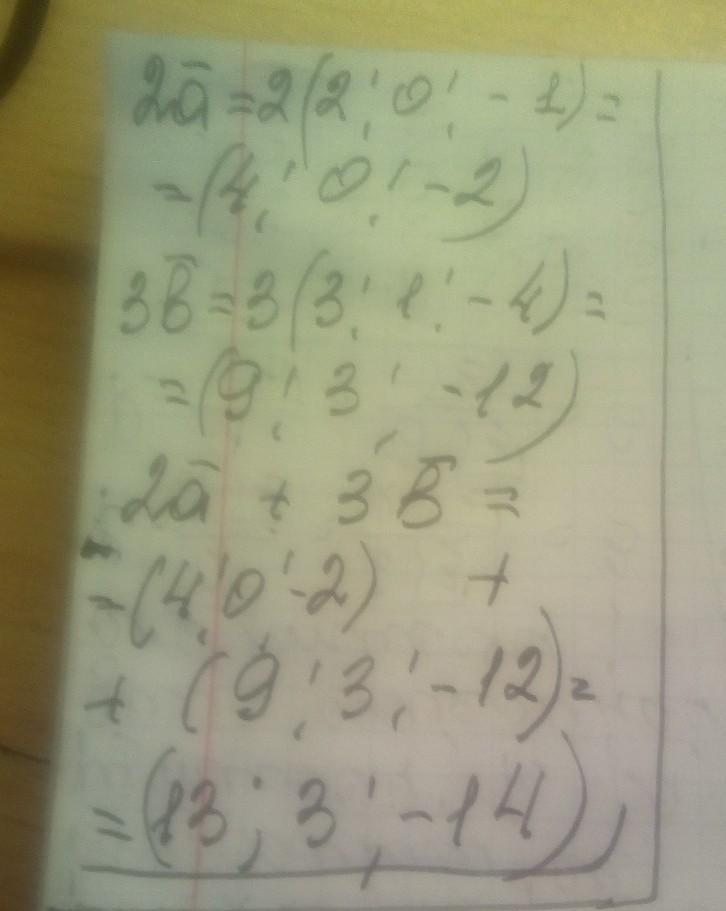 2ā = 2(2; 0; -1) =
= (4; 0; -2)
3b̄ = 3(3; 1; -4) =
= (9; 3; -12)
2ā + 3b̄ =
= (4; 0; -2) +
+ (9; 3; -12) =
= (13; 3; -14),